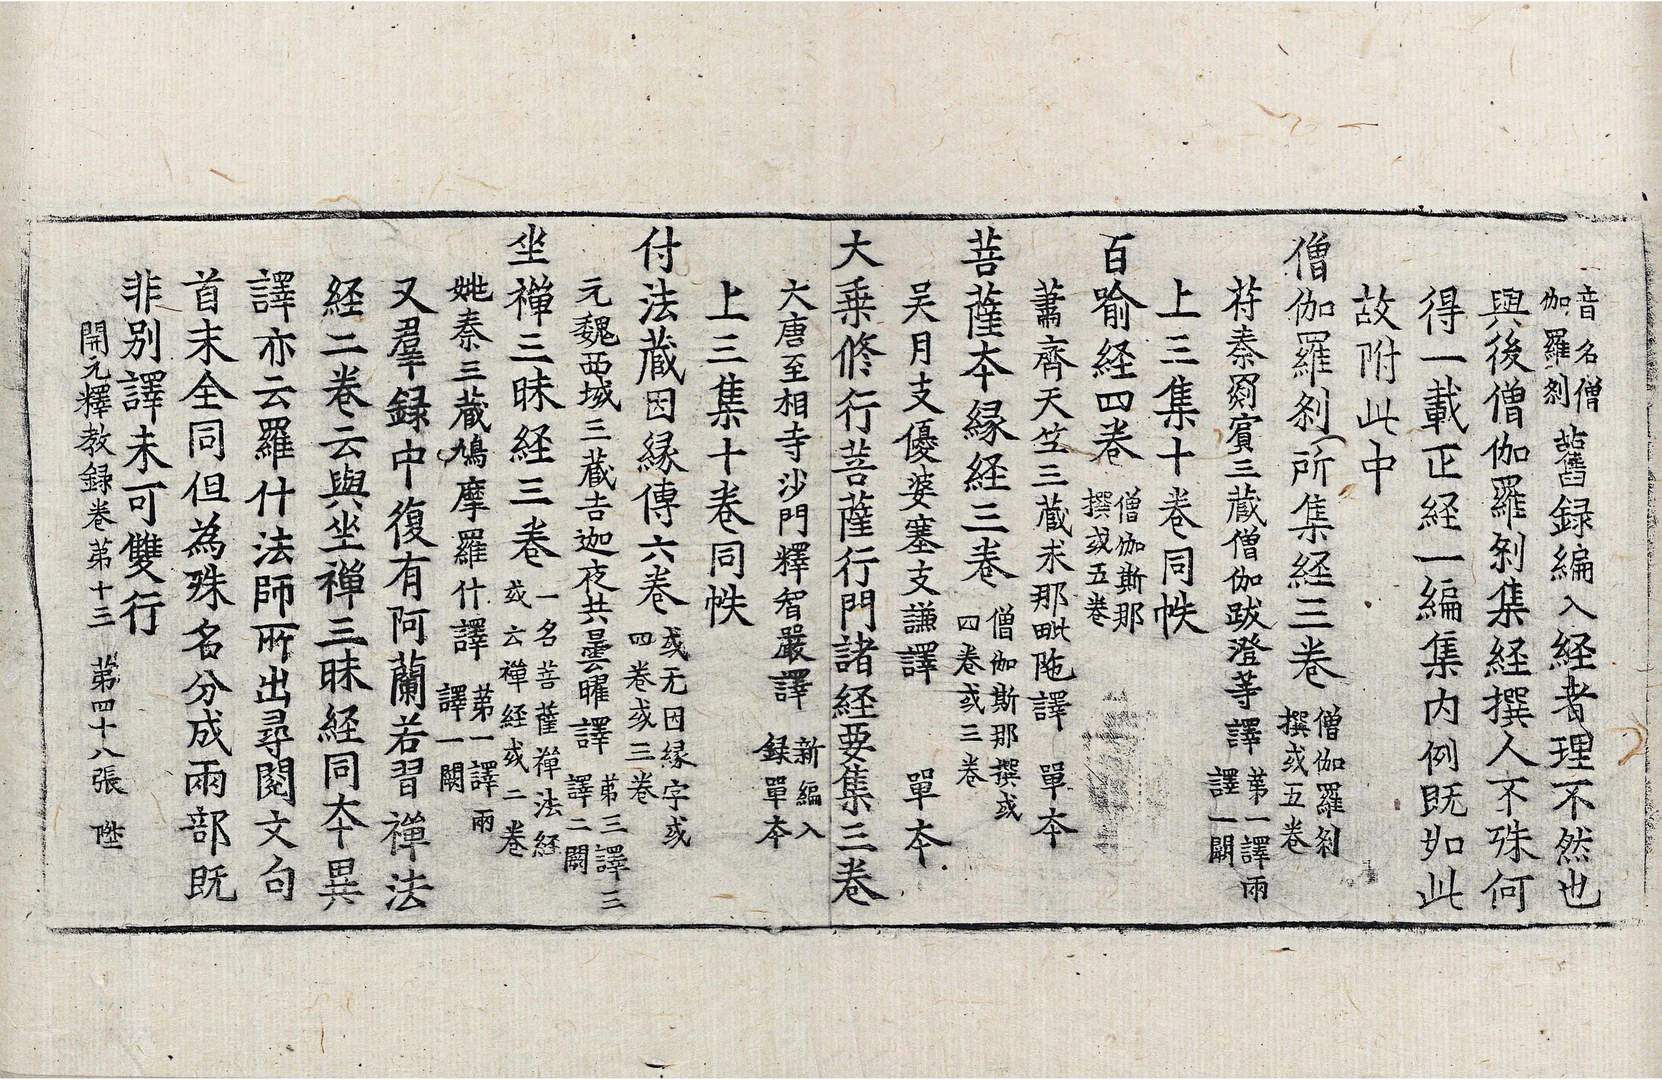 音名僧伽羅刹舊録編入経者理不然也
與後僧伽羅刹集経撰人不殊何
得一載正経一編集内例既如此
故附此中
僧伽羅刹所集経三卷僧伽羅刹撰或五卷
苻秦罽賓三藏僧伽跋澄等譯第一譯兩譯一闕
上三集十卷同帙
百喻経四卷僧伽斯那撰或五卷
蕭齊天竺三藏求那毗陁譯單夲
菩薩夲縁経三卷僧伽斯那撰或四卷或三卷
吴月支優婆塞支謙譯單夲
大乗修行菩薩行門諸経要集三卷
大唐至相寺沙門釋智嚴譯新編入録單夲
上三集十卷同帙
付法藏因縁傳六卷或无因縁字或四卷或三卷
元魏西域三藏吉迦夜共曇曜譯第三譯三譯二闕
坐禪三昧経三卷一名菩薩禪法経或云禪経或二卷
姚秦三藏鳩摩羅什譯第一譯兩譯一闕
又羣録中復有阿蘭若習禪法
経二卷云與坐禪三昧経同夲異
譯亦云羅什法師所出尋閱文句
首末全同但為殊名分成兩部既
非別譯未可雙行
開元釋教録卷第十三　第四十八張　陞